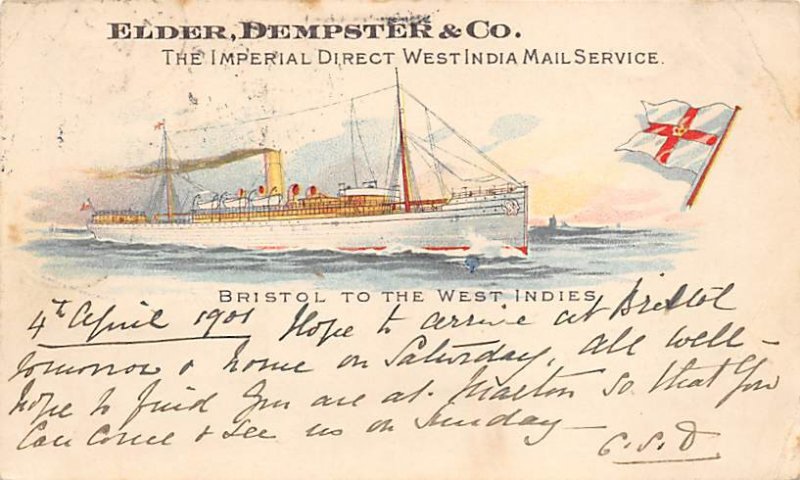 ELDER, DEMPSTER & CO.
THE IMPERIAL DIRECT WEST INDIA MAIL SERVICE.
BRISTOL TO THE WEST INDIES
4th April 1901 Hope to arrive at Bristol
tomorrow & home on Saturday, all well –
hope to find you are at Marton so that you
can come & see us on Sunday –
C.S.D